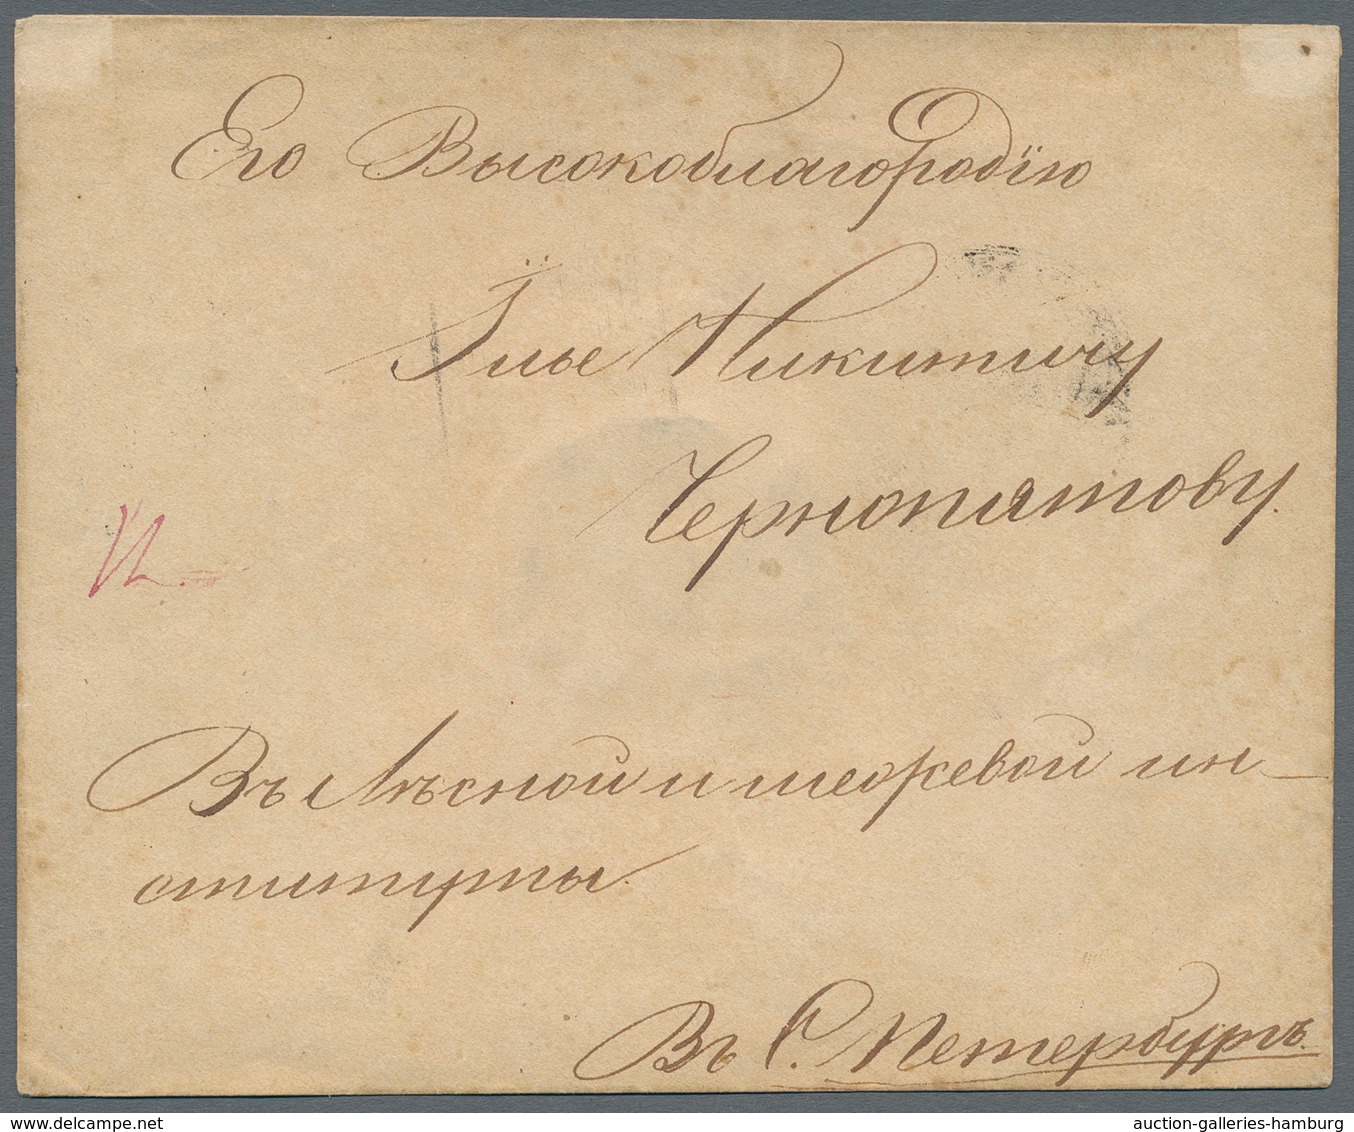 Его Высокоблагородїю
Їлье Никитичу
Чернопятову.
Въ Лѣсной и межевой ин-
ституты.
Въ С. Петербургъ.
delcampe.net
auction-galleries-hamburg